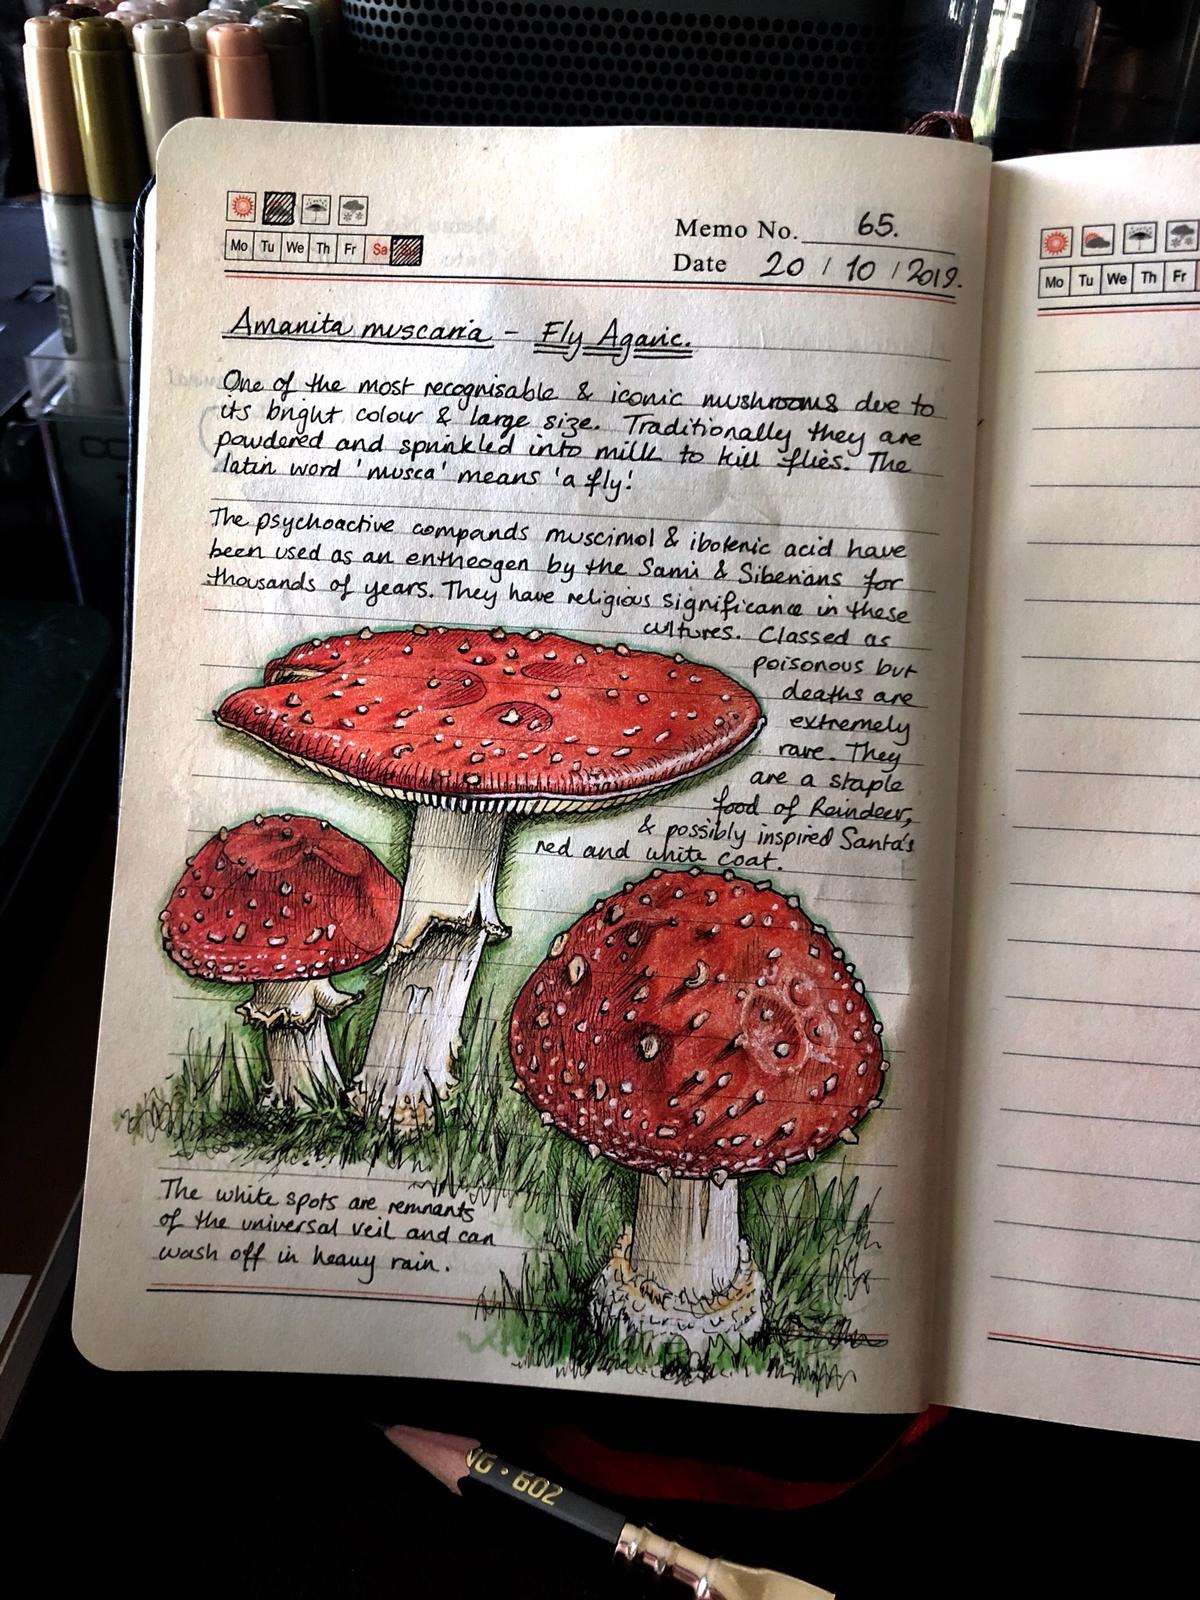 Memo No. 65.
Mo Tu We Th Fr Sa
Date 20 / 10 / 2019.
Amanita muscaria - Fly Agaric.
One of the most recognisable & iconic mushrooms due to
its bright colour & large size. Traditionally they are
powdered and sprinkled into milk to kill flies. The
latin word 'musca' means 'a fly!
The psychoactive compounds muscimol & ibotenic acid have
been used as an entheogen by the Sami & Siberians for
thousands of years. They have religious significance in these
cultures. Classed as
poisonous but
deaths are
extremely
rare. They
are a staple
food of Reindeer,
& possibly inspired Santa's
red and white coat.
The white spots are remnants
of the universal veil and can
wash off in heavy rain.
Mo Tu We Th Fr
NG • 602